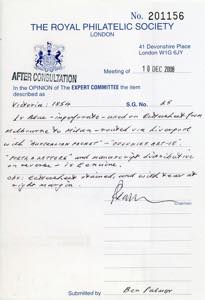 No. 201156
THE ROYAL PHILATELIC SOCIETY
LONDON
41 Devonshire Place
London W1G 6JY
AFTER CONSULTATION
Meeting of 10 DEC 2008
In the OPINION of The EXPERT COMMITTEE the item
described as
Victoria: 1854 S.G. No. 25
1s Blue - imperforate - used on Entwashed from
Melbourne to - routed via Liverpool
with "AUSTRALIAN PACKET" -
and manuscript
on reverse - is genuine.
stained, and with tear at
right margin.
Chairman
Submitted by Ben Palmer